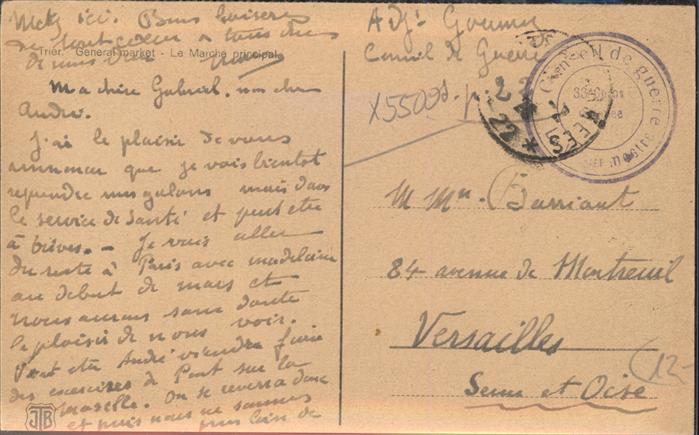 Metz ici. Bons baisers
de tout coeur à tous deux
de nous deux
Trier. Generalmarket - Le Marche principal.
Ma chère Gabriel. mon cher
André.
J'ai le plaisir de vous
annoncer que je vais bientôt
reprendre mes galons mais dans
le service de santé et peut etre
à brives. - Je vais aller
du reste à Paris avec madeleine
au début de mars et
nous aurons sans doute
le plaisir de nous voir.
Peut etre André viendra faire
des exercices de Pont sur la
moselle. On se reverra donc
et puis nous ne sommes
plus loin de
JTB
Adjt Goumy
Conseil de Guerre
X55092
Conseil de guerre
22
M Mme Barriant
84 avenue de Montreuil
Versailles
Seine et Oise
12-